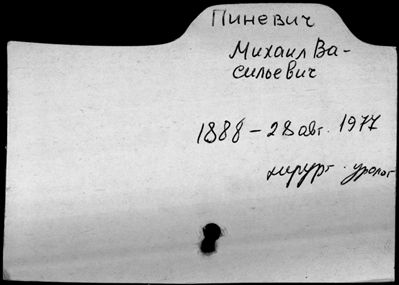 Пиневич
Михаил Ва-
сильевич
1888 – 28 авг. 1977
хирург. уролог